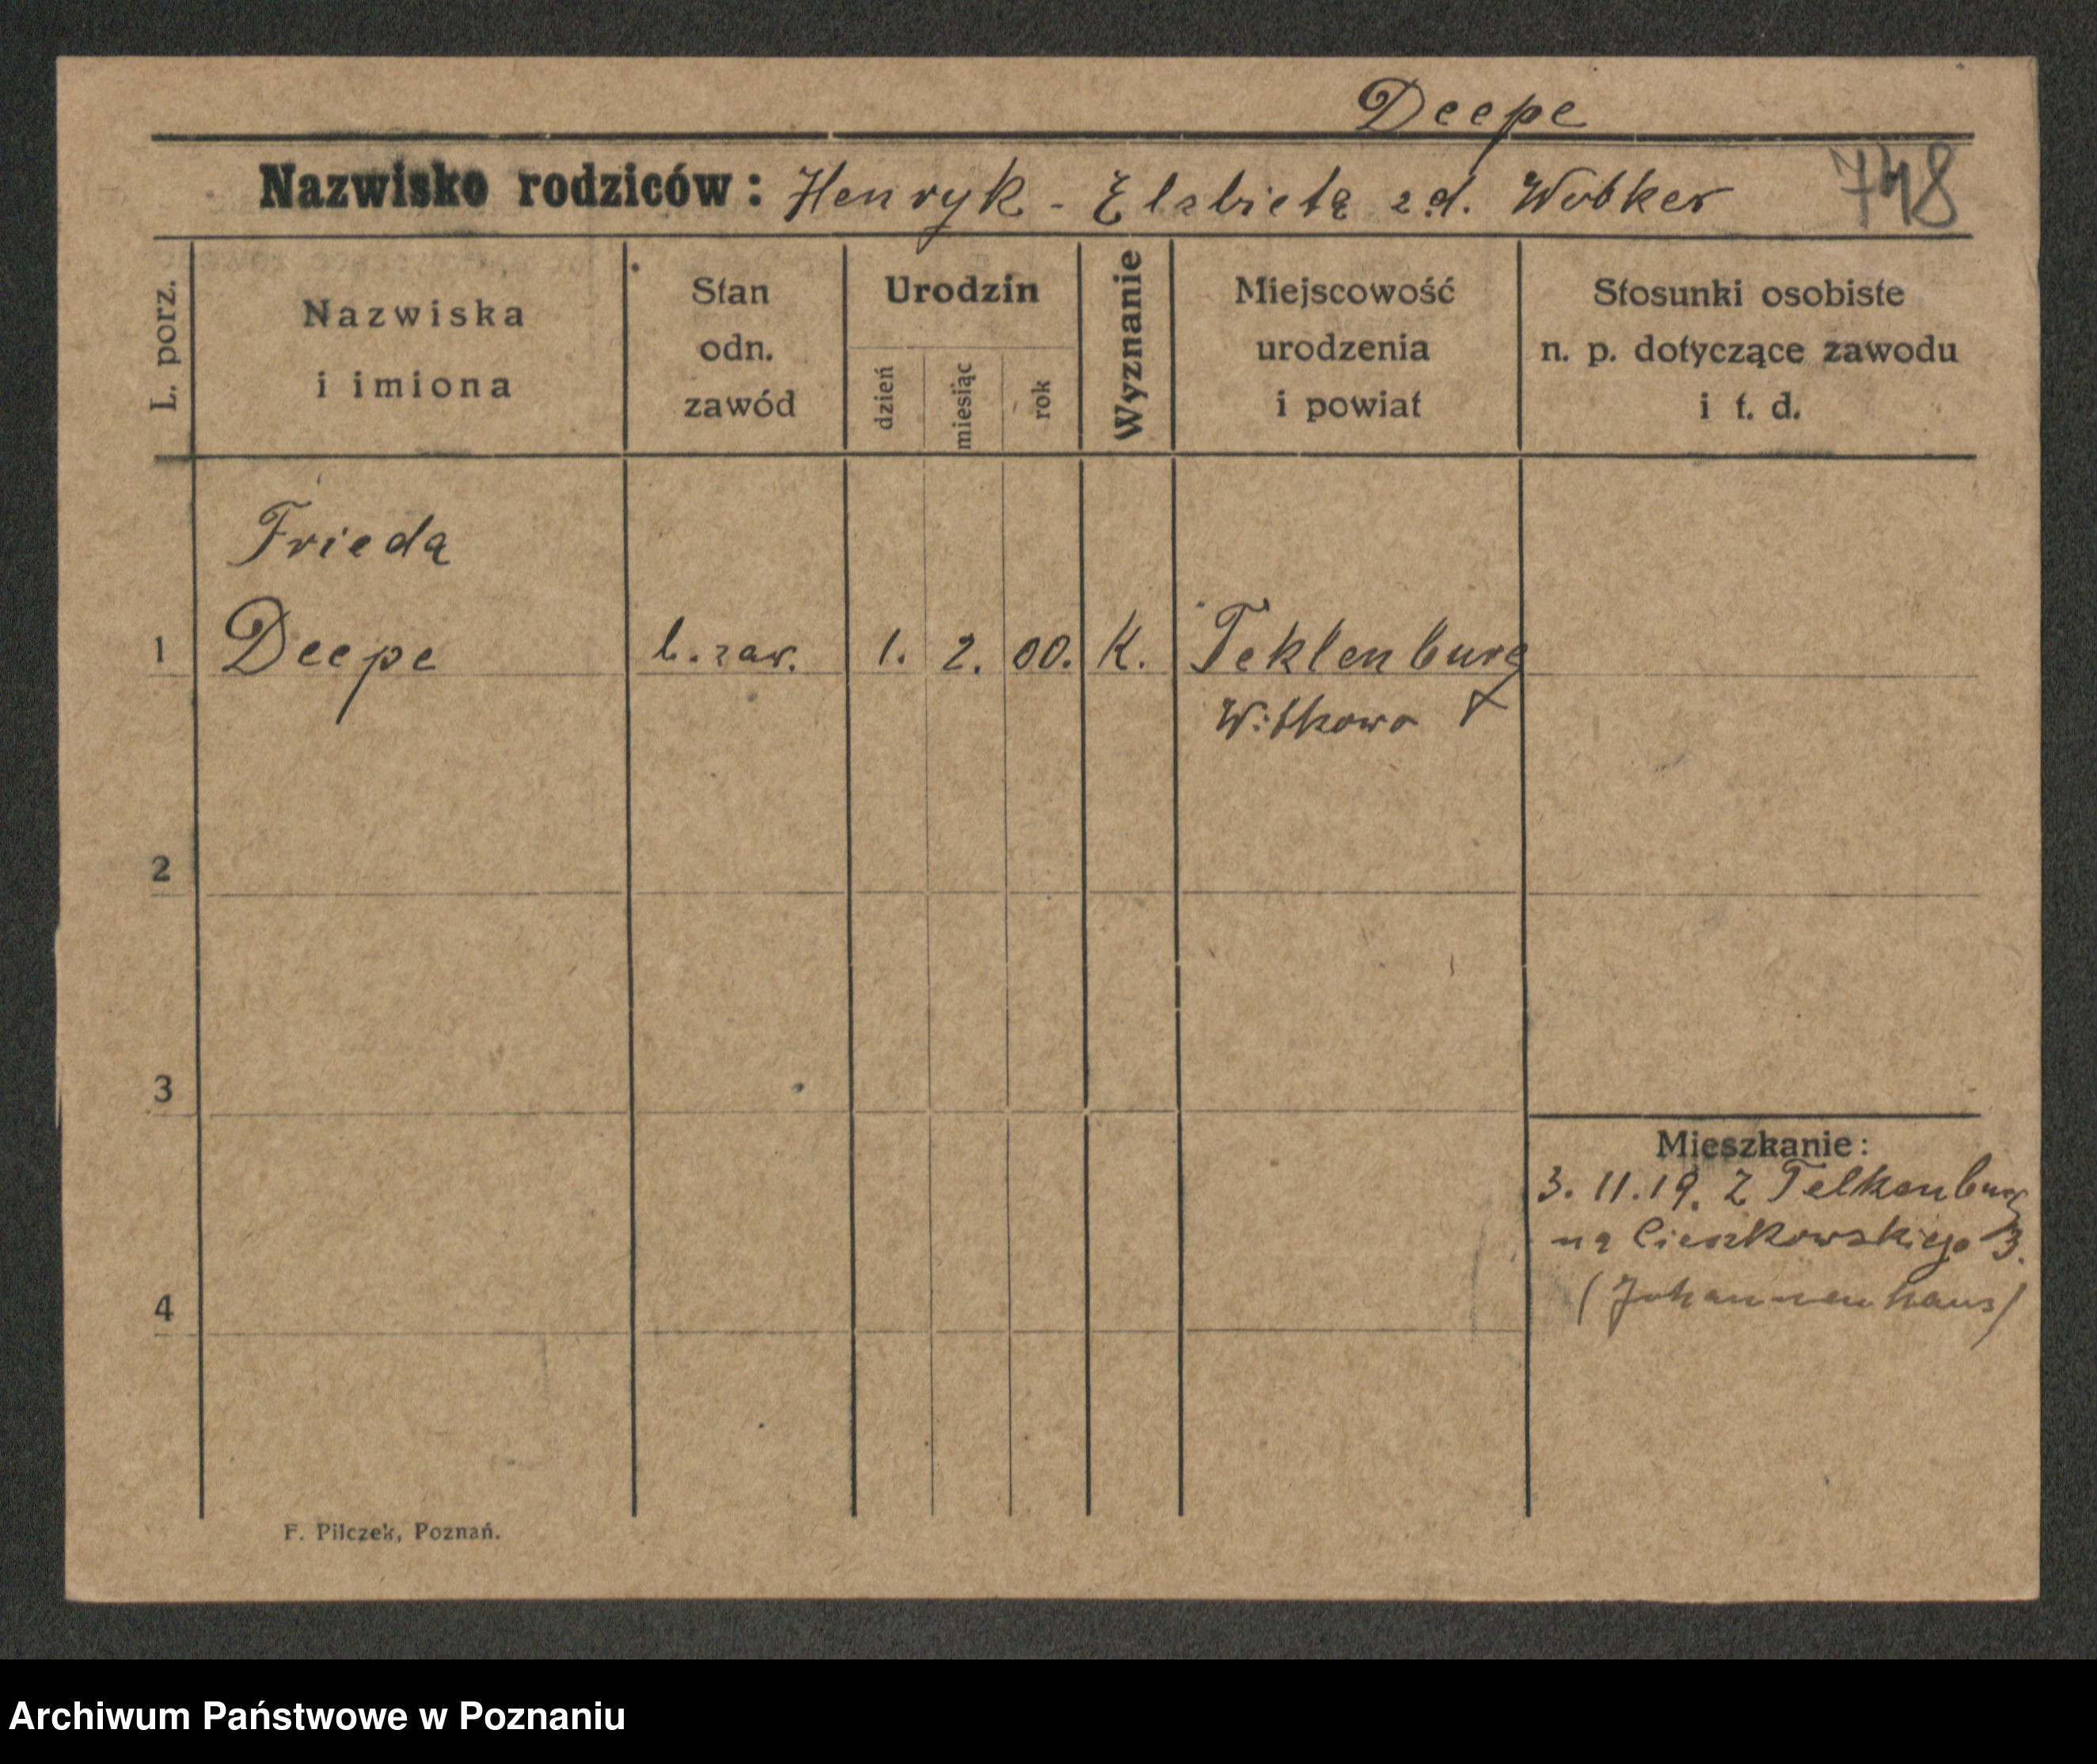 Deepe
Nazwisko rodziców: Henryk - Elzbieta z d. Wobker 748
L. porz.
Nazwiska
i imiona
Stan
odn.
zawód
Urodzin
dzień
miesiąc
rok
Wyznanie
Miejscowość
urodzenia
i powiat
Stosunki osobiste
n. p. dotyczące zawodu
i t. d.
Frieda
1 Deepe b. zaw. 1. 2. 00. K. Teklenburg
Witkowo
2
3
Mieszkanie:
3. 11. 19. Z Telkenburg
na Cieszkowskiego 3.
(Johannenhaus)
4
F. Pilczek, Poznań.
Archiwum Państwowe w Poznaniu